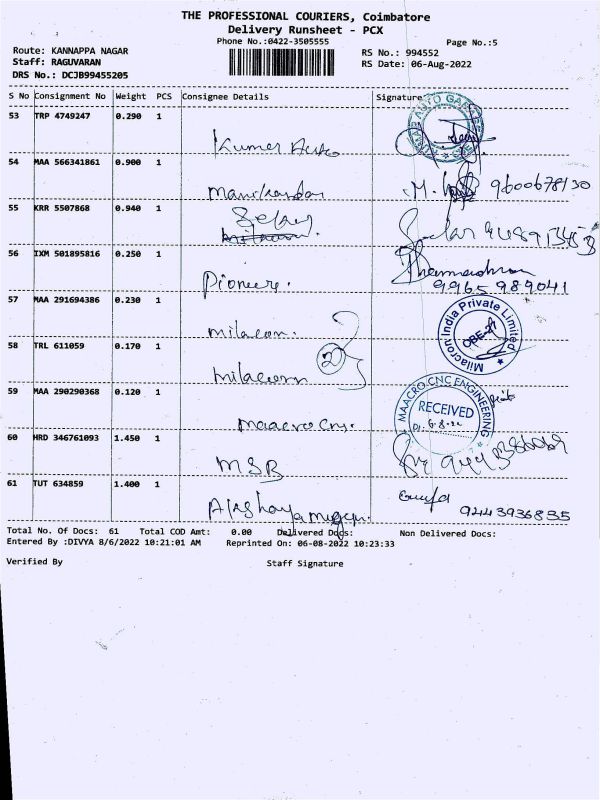 THE PROFESSIONAL COURIERS, Coimbatore
Delivery Runsheet - PCX
Phone No.:0422-3505555
Page No.:5
Route: KANNAPPA NAGAR
RS No.: 994552
Staff: RAGUVARAN
RS Date: 06-Aug-2022
DRS No.: DCJB99455205
S No Consignment No Weight PCS Consignee Details Signature
53 TRP 4749247 0.290 1
Kumar Auto
54 MAA 566341861 0.900 1
Manikandan M. 9600678130
55 KRR 5507868 0.940 1
Sekar
56 IXM 501895816 0.250 1
Pioneer.
9965989041
57 MAA 291694386 0.230 1
milacron.
Milacron India Private Limited
58 TRL 611059 0.170 1
2
milacron
59 MAA 290290368 0.120 1
MAACRO CNC ENGINEERING
RECEIVED
Dt. 6.8.22
Maacro Cnc.
60 HRD 346761093 1.450 1
MSB
61 TUT 634859 1.400 1
Akshaya
9443936835
Total No. Of Docs: 61 Total COD Amt: 0.00 Delivered Docs: Non Delivered Docs:
Entered By :DIVYA 8/6/2022 10:21:01 AM Reprinted On: 06-08-2022 10:23:33
Verified By Staff Signature